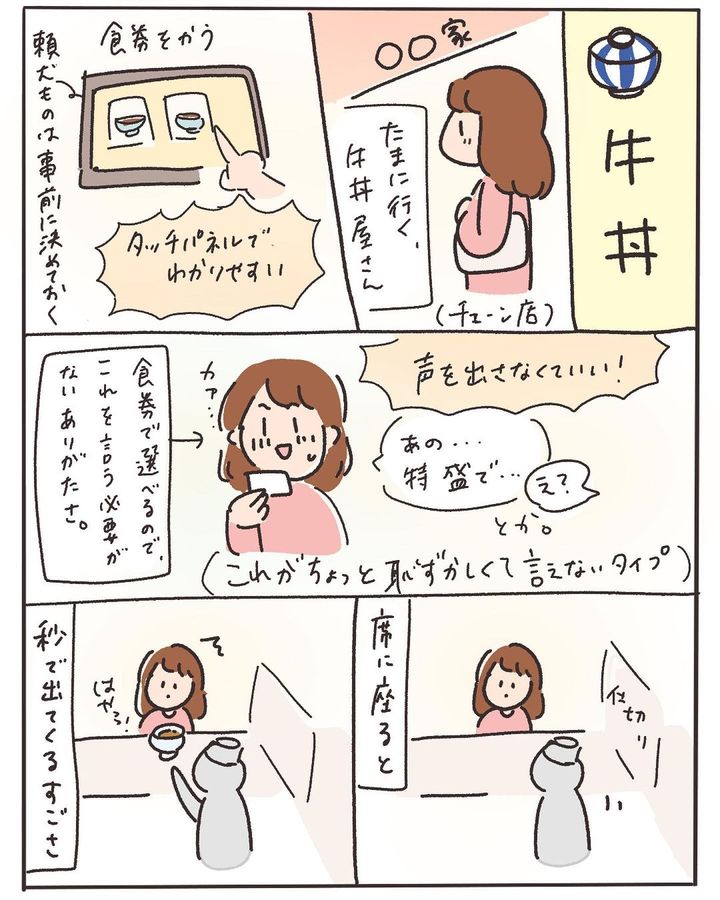 牛丼
〇〇家
たまに行く、
牛丼屋さん
(チェーン店)
食券をかう
頼むものは事前に決めておく
タッチパネルで
わかりやすい
声を出さなくていい!
あの・・・
特盛で・・・
え?
とか。
(これがちょっと恥ずかしくて言えないタイプ)
カァ・・・
食券で選べるので、
これを言う必要が
ないありがたさ。
席に座ると
仕切り
秒で出てくるすごさ
はやっ!